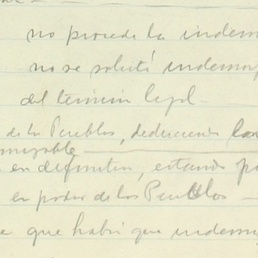 no procede la indem
no se solicitó indem
del termino legal.
de los Pueblos, deduciendo las
en definitiva, estando po
en poder de los Pueblos
e que habrá que indem